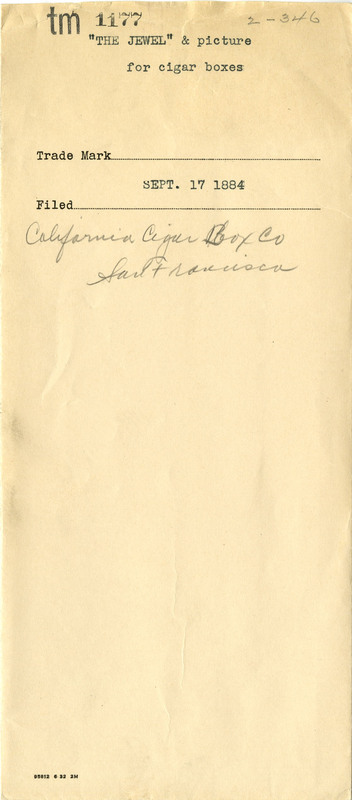 tm 1177 2-346
"THE JEWEL" & picture
for cigar boxes
Trade Mark
SEPT. 17 1884
Filed
California Cigar Box Co
San Francisco
95612 6 32 2M